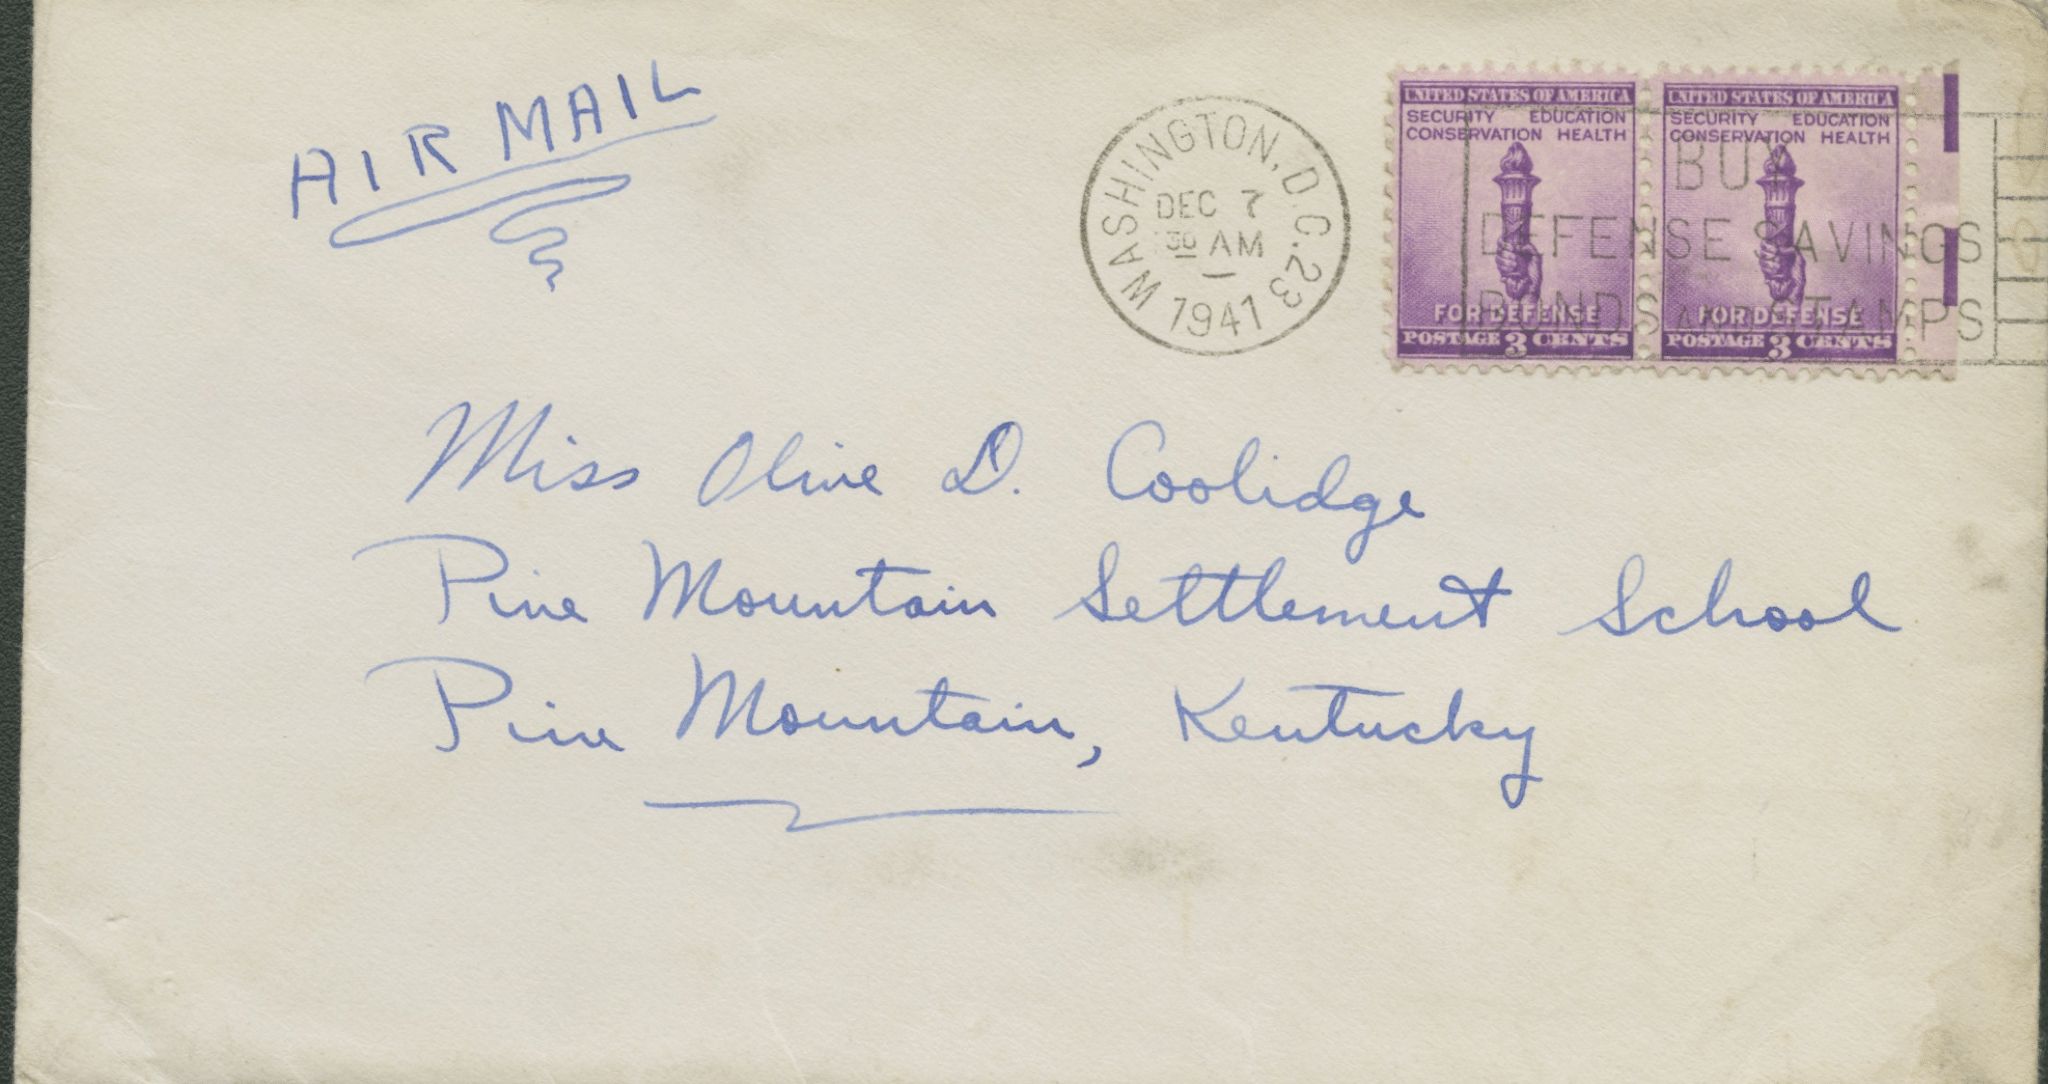 AIR MAIL
WASHINGTON, D.C. 23
DEC 7
30 AM
1941
UNITED STATES OF AMERICA
SECURITY EDUCATION
CONSERVATION HEALTH
FOR DEFENSE
POSTAGE 3 CENTS
UNITED STATES OF AMERICA
SECURITY EDUCATION
CONSERVATION HEALTH
FOR DEFENSE
POSTAGE 3 CENTS
BUY
DEFENSE SAVINGS
BONDS AND STAMPS
Miss Olive D. Coolidge
Pine Mountain Settlement School
Pine Mountain, Kentucky